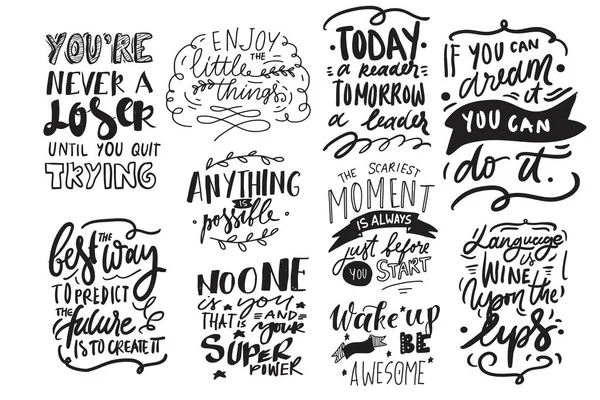 YOU'RE
NEVER A
LOSER
UNTIL YOU QUIT
TRYING
ENJOY
THE
little
things
TODAY
a reader
TOMORROW
a leader
IF YOU CAN
dream
it
YOU CAN
do it.
ANYTHING
IS
possible
THE SCARIEST
MOMENT
IS ALWAYS
just before
YOU START
best THE way
TO PREDICT
THE future
IS TO CREATE IT
NO ONE
is you
THAT IS AND
your
SUPER
POWER
Wake up
&
BE
AWESOME
Language
is
WINE
upon the
lips